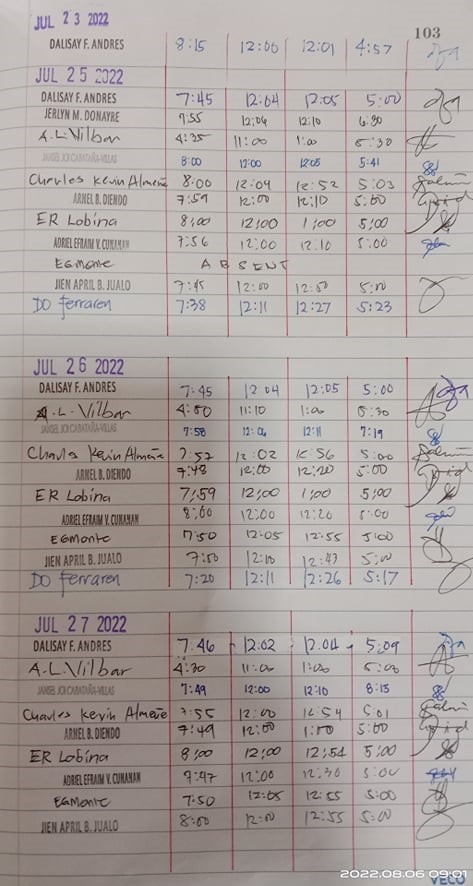 JUL 23 2022
103
DALISAY F. ANDRES 8:15 12:00 12:01 4:57
JUL 25 2022
DALISAY F. ANDRES 7:45 12:04 12:05 5:00
JERLYN M. DONAYRE 7:55 12:04 12:10 6:30
A.L. Vilbar 4:35 11:00 1:00 5:30
8:00 12:00 12:05 5:41
Charles Kevin Almeñe 8:00 12:04 12:52 5:03
ARNEL B. DIENDO 7:59 12:00 12:10 5:00
ER Lobina 8:00 12:00 1:00 5:00
ADRIEL EFRAIM V. CUNANAN 7:56 12:00 12:10 5:00
EGMonte ABSENT
JIEN APRIL B. JUALO 7:45 12:00 12:50 5:00
DO Ferraren 7:38 12:11 12:27 5:23
JUL 26 2022
DALISAY F. ANDRES 7:45 12:04 12:05 5:00
A.L. Vilbar 4:00 11:10 1:00 5:30
7:58 12:06 12:11 7:19
Charles Kevin Almeñe 7:57 12:02 12:56 5:00
ARNEL B. DIENDO 7:48 12:00 12:20 5:00
ER Lobina 7:59 12:00 1:00 5:00
ADRIEL EFRAIM V. CUNANAN 8:00 12:00 12:20 5:00
EGMonte 7:50 12:05 12:55 5:00
JIEN APRIL B. JUALO 7:50 12:10 12:47 5:00
DO Ferraren 7:20 12:11 12:26 5:17
JUL 27 2022
DALISAY F. ANDRES 7:46 12:02 12:04 5:09
A.L. Vilbar 4:30 11:00 1:00 5:00
7:49 12:00 12:10 8:15
Charles Kevin Almeñe 7:55 12:00 12:54 5:01
ARNEL B. DIENDO 7:49 12:00 1:00 5:00
ER Lobina 8:00 12:00 12:54 5:00
ADRIEL EFRAIM V. CUNANAN 7:47 12:00 12:30 5:00
EGMonte 7:50 12:05 12:55 5:00
JIEN APRIL B. JUALO 8:00 12:00 12:55 5:00
2022.08.06 09:01
VECO